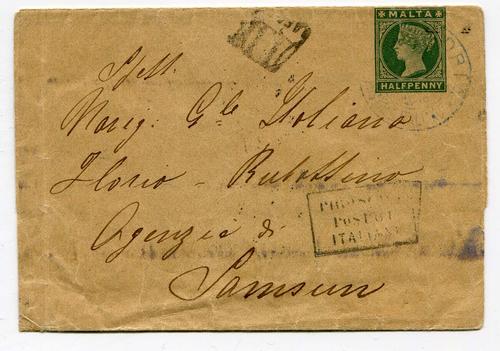 MALTA
HALFPENNY
Spett.
Navig. Gle Italiana
Florio - Rubattino
Agenzia di
Samsun
PIROSCAFI
POSTALI
ITALIANI